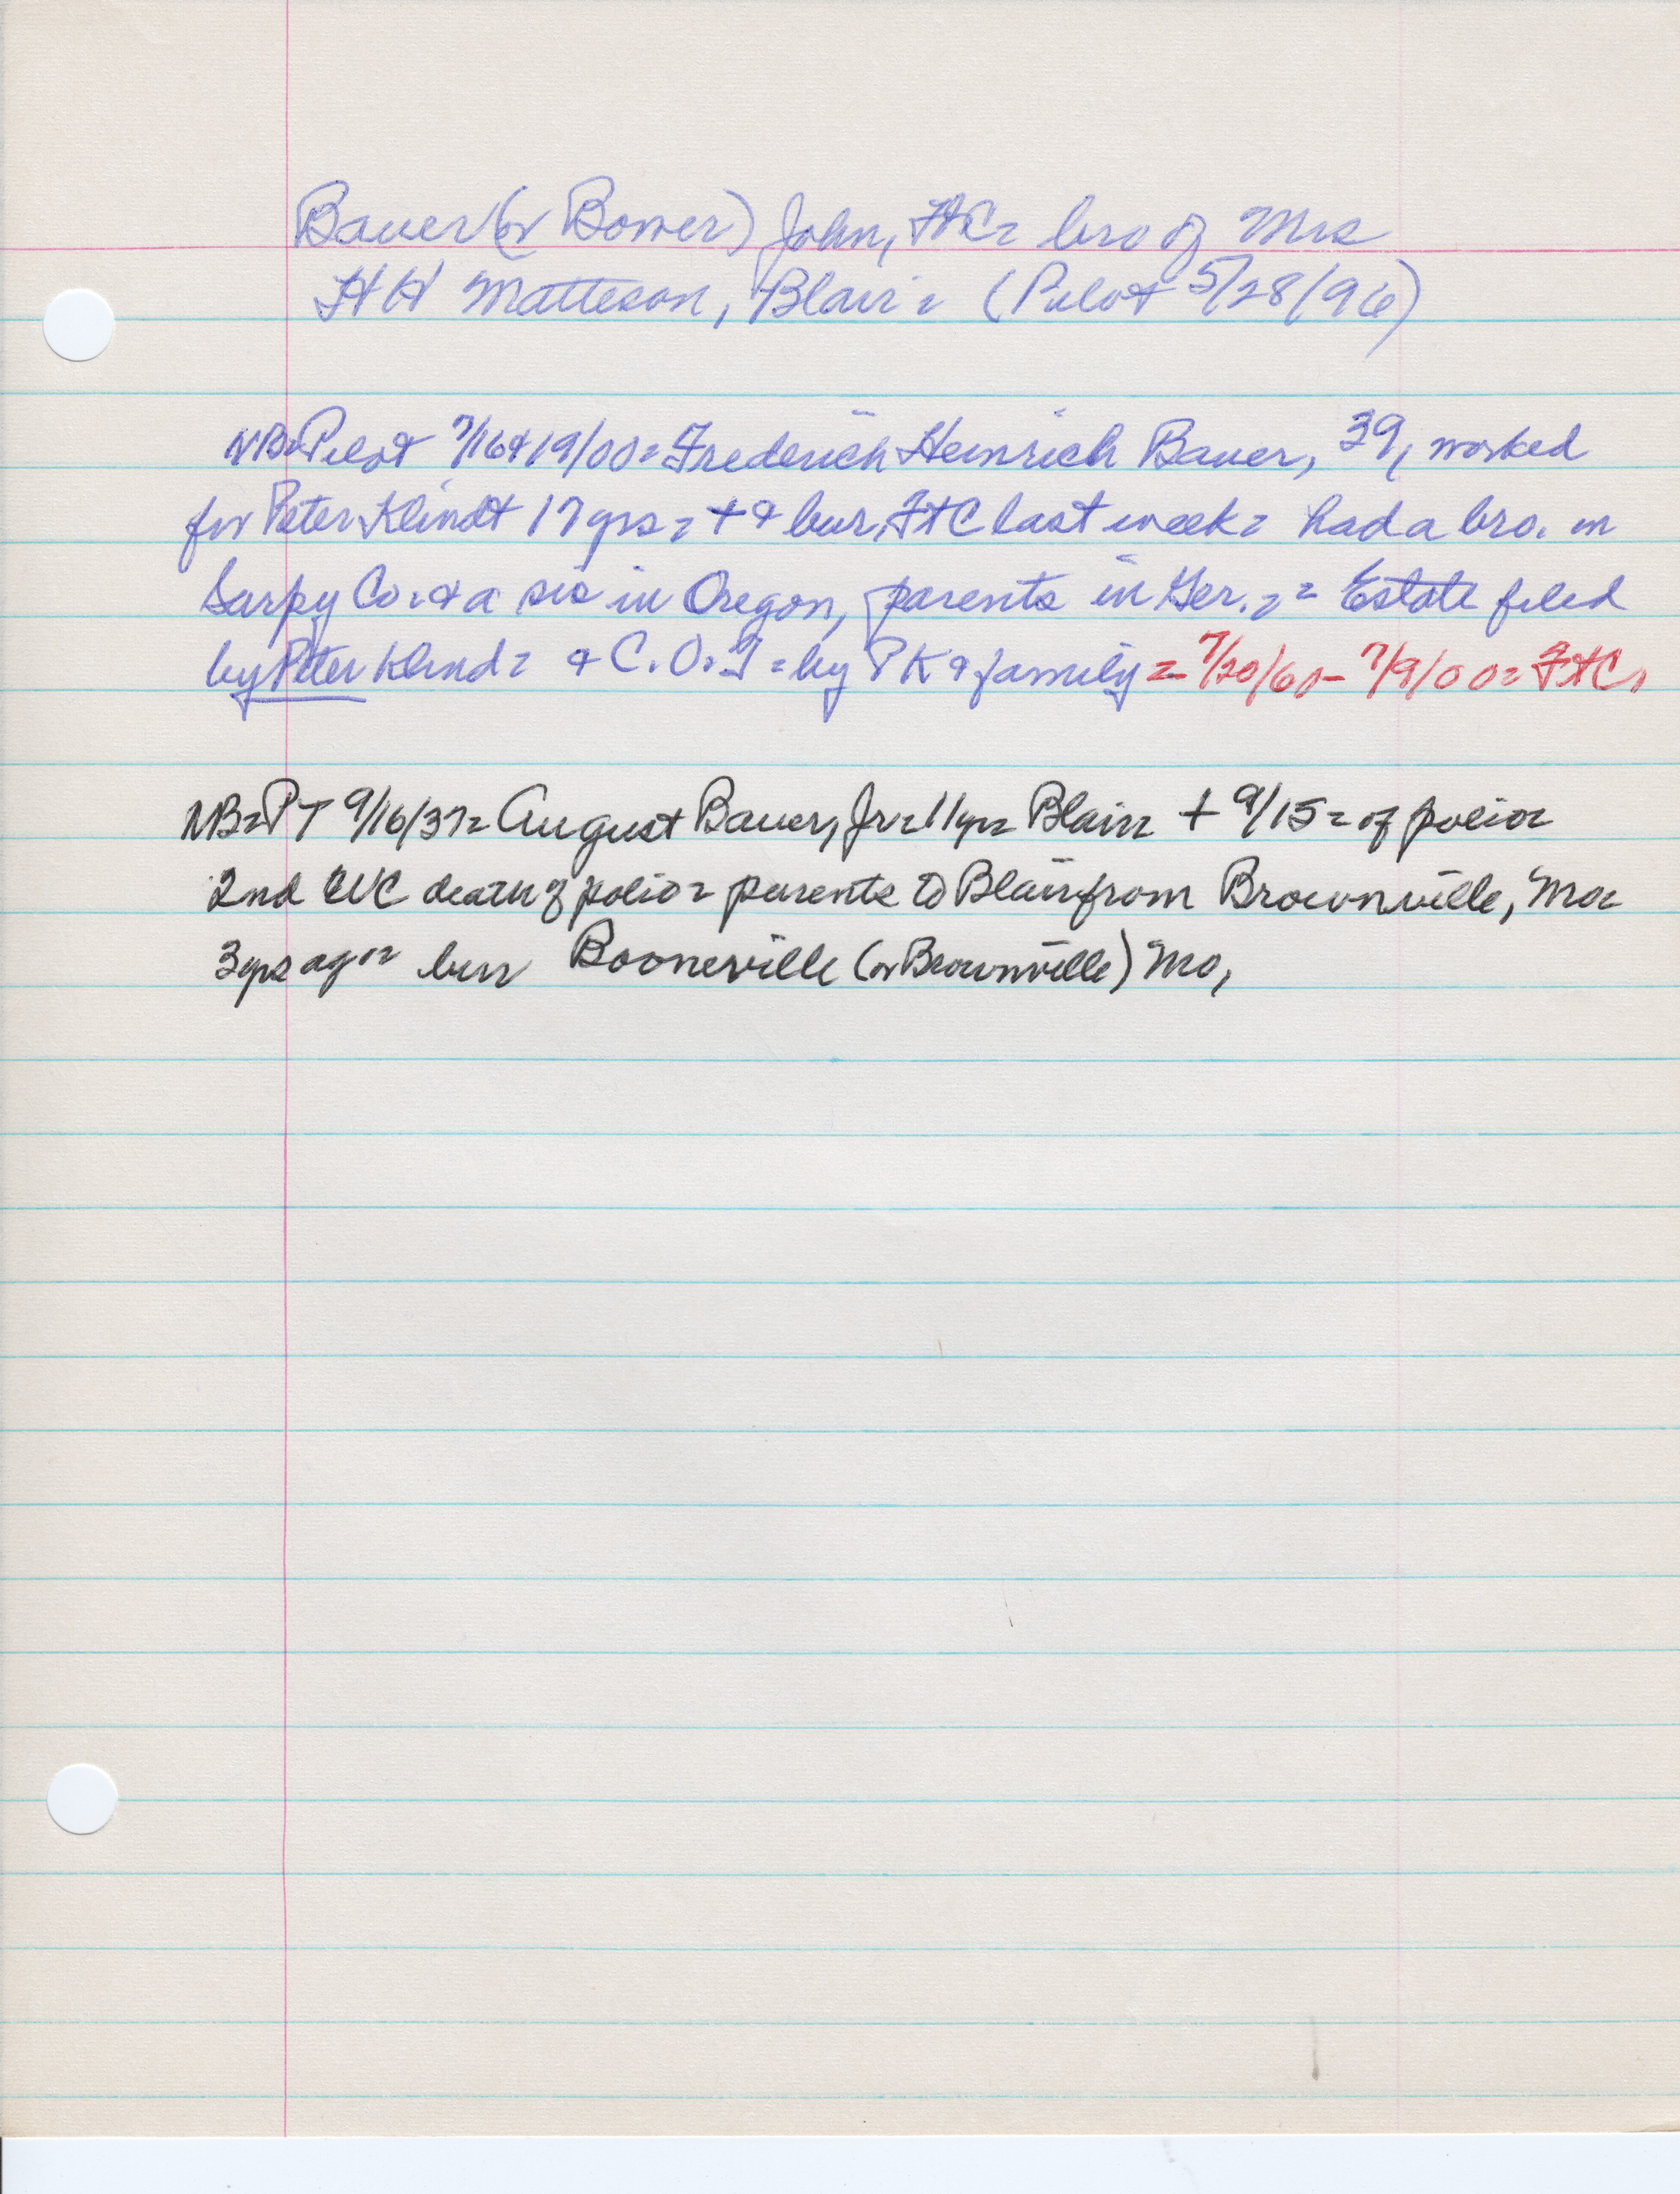 Bauer (or Bower) John, FtC= bro of Mrs
HH Matteson, Blair= (Pilot 5/28/96)
NB=Pilot 7/16&19/00= Frederich Heinrich Bauer, 39, worked
for Peter Klindt 17 yrs= + & bur, FtC last week= had a bro. in
Sarpy Co. & a sis in Oregon, parents in Ger.= = Estate filed
by Peter Klind= & C.O.T= by PK & family = 7/20/60- 7/9/00= FtC,
NB=PT 9/16/37= August Bauer, Jr=11yr= Blair= + 9/15= of polio=
2nd death of polio= parents to Blair from Brownville, Mo=
3yrs ago= bur= Booneville (or Brownville) Mo,